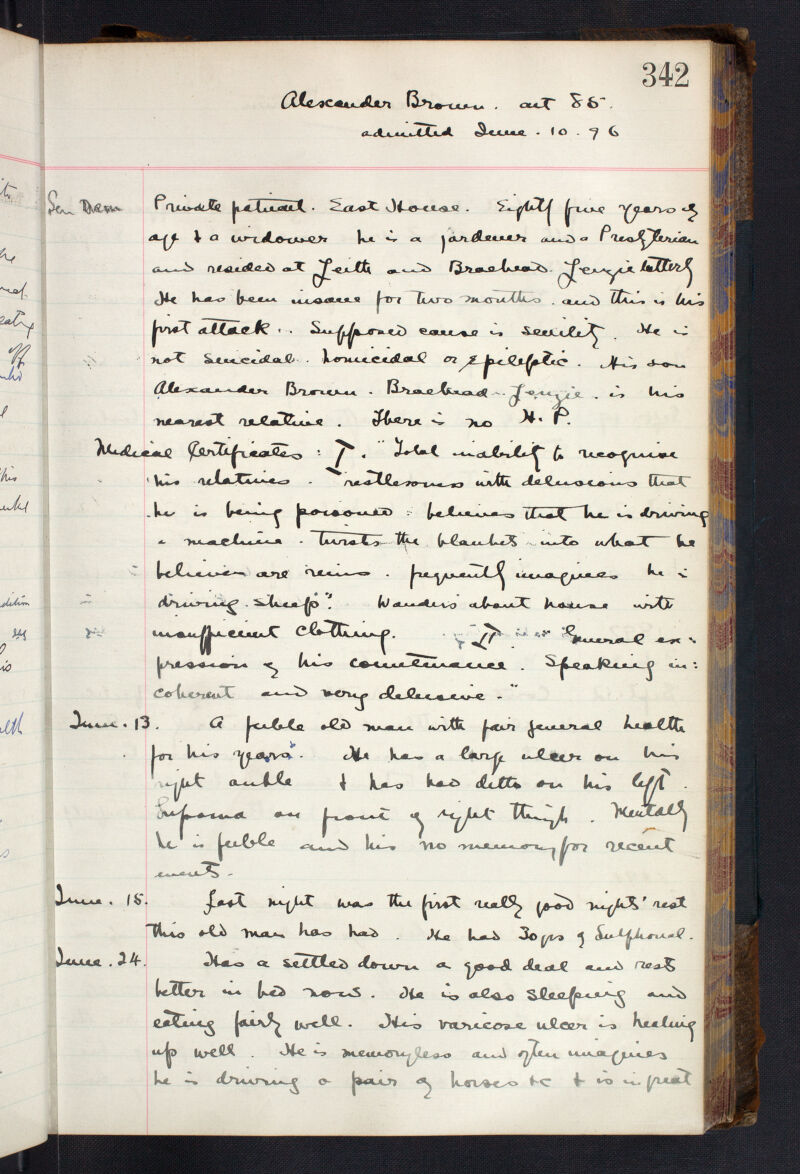 342
Alexander Brown. aet 85.
admitted June. 10. 96
Sen Dem
Private patient. East House. Eighty five years of
age & a widower he is a gardener and a Presbyterian
and resided at Leith and Braehead Lenzie latterly
He has been insane for two months. and this is his
first attack. Supposed cause is senility. He is
not suicidal. homicidal or epileptic. His son
Alexander Brown. Braehead. Lenzie. is his
nearest relative. There is no H. P.
Medical Certificates: I. "Total inability to recognise
his relatives. restlessness with delusions that
he is being poisoned: believes that he is driving
a machine. twists the blankets into what he
believes are reins. frequently imagines he is
driving sheep". Wanders about house with
insufficient clothing. II. "General ex-
pression of his countenance. Speaking in:
coherent and very delusive."
June. 13. A feeble old man with fair general health
for his years. He has a large ulcer on his
right ankle & has had ditto on his left.
Lipoma on front of right thigh. Mentally
he is feeble and his no memory for recent
events.
June. 15. Last night was the first really good nights' rest
this old man has had. He had 30grs of Sulphonal.
June. 24. Has a settled down a good deal and rests
better in bed now. He is also sleeping and
eating fairly well. His varicose ulcer is healing
up well. He is memoryless and often imagines
he is driving a pair of horses &c & is in great